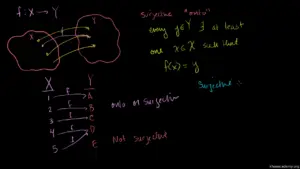 f: X → Y
Surjective "onto"
every y∈Y ∃ at least
one x∈X such that
f(x) = y
X Y
x y
Surjective :
X Y
1 f A
2 f B
3 f C
4 f D
5 E
onto or surjective
Not surjective